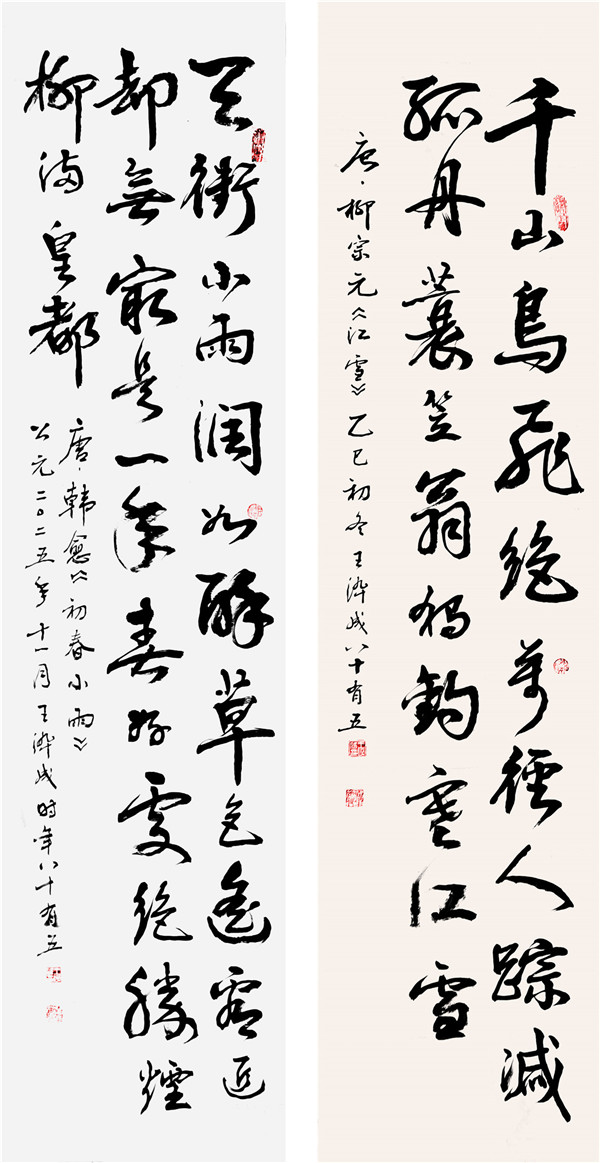 千山鳥飛絕萬徑人踪滅
孤舟蓑笠翁独釣寒江雪
唐·柳宗元《江雪》乙巳初冬王成八十有五
天街小雨潤如酥草色遙看近
却無最是一年春好處絕勝煙
柳滿皇都
唐·韓愈《初春小雨》
公元二〇二五年十一月王成时年八十有五